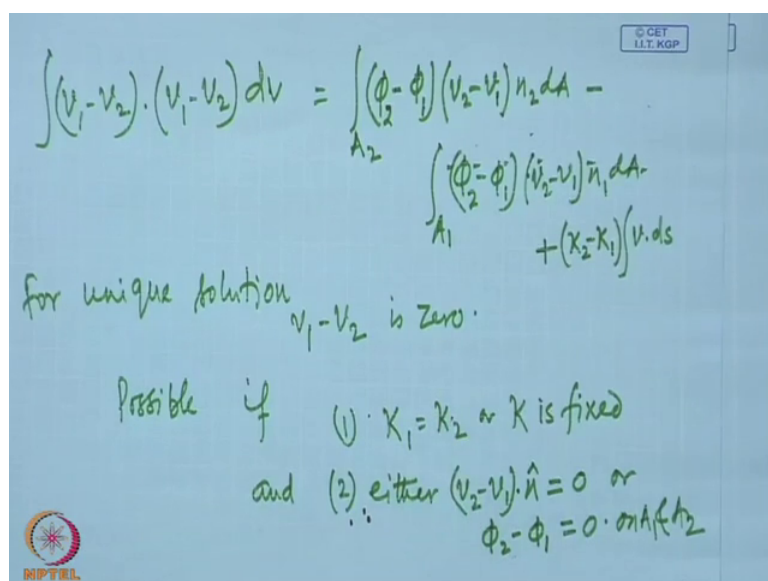 © CET
I.I.T. KGP
∫(v₁-v₂)·(v₁-v₂) dv = ∫_A₂ (ϕ₂-ϕ₁)(v₂-v₁) n₂ dA -
∫_A₁ (ϕ₂-ϕ₁)(v₂-v₁) n₁ dA-
+(K₂-K₁)∫v.ds
for unique solution
v₁-v₂ is zero.
Possible if (1)· K₁=K₂ or K is fixed
and (2) either (v₂-v₁)·n̂=0 or
ϕ₂-ϕ₁=0· on A₁ & A₂
NPTEL